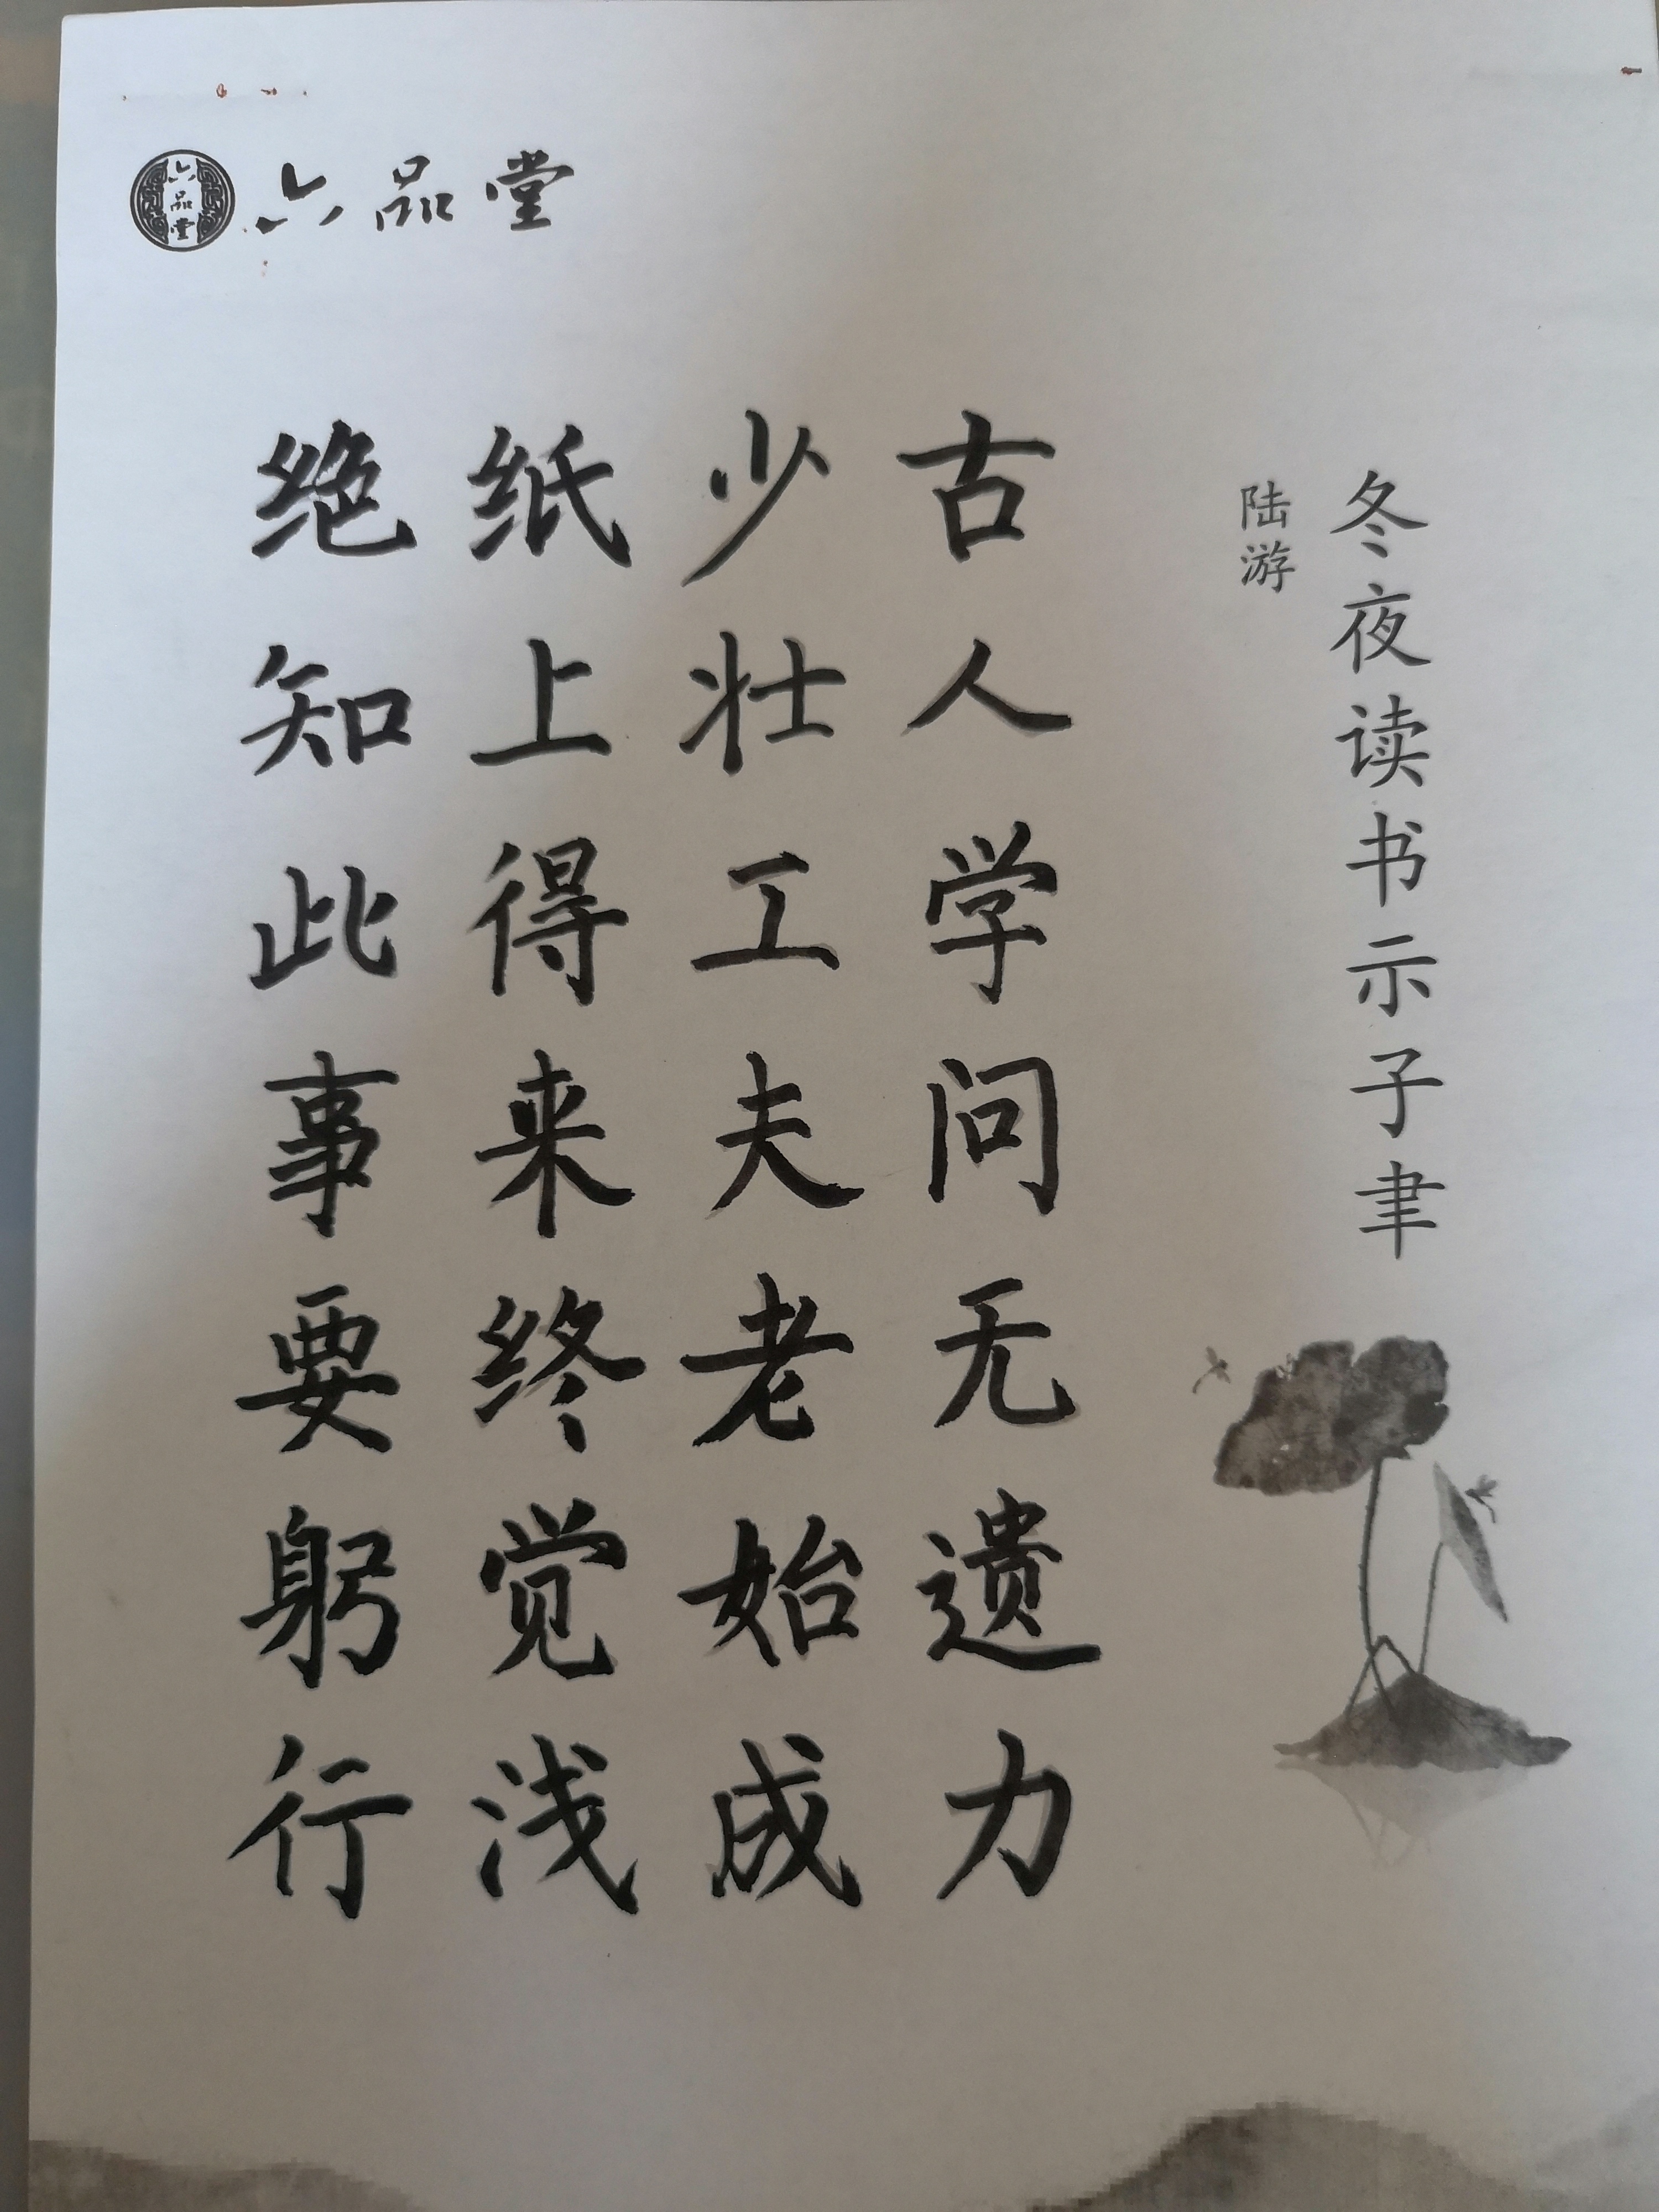 六品堂
六品堂
冬夜读书示子聿
陆游
古人学问无遗力
少壮工夫老始成
纸上得来终觉浅
绝知此事要躬行